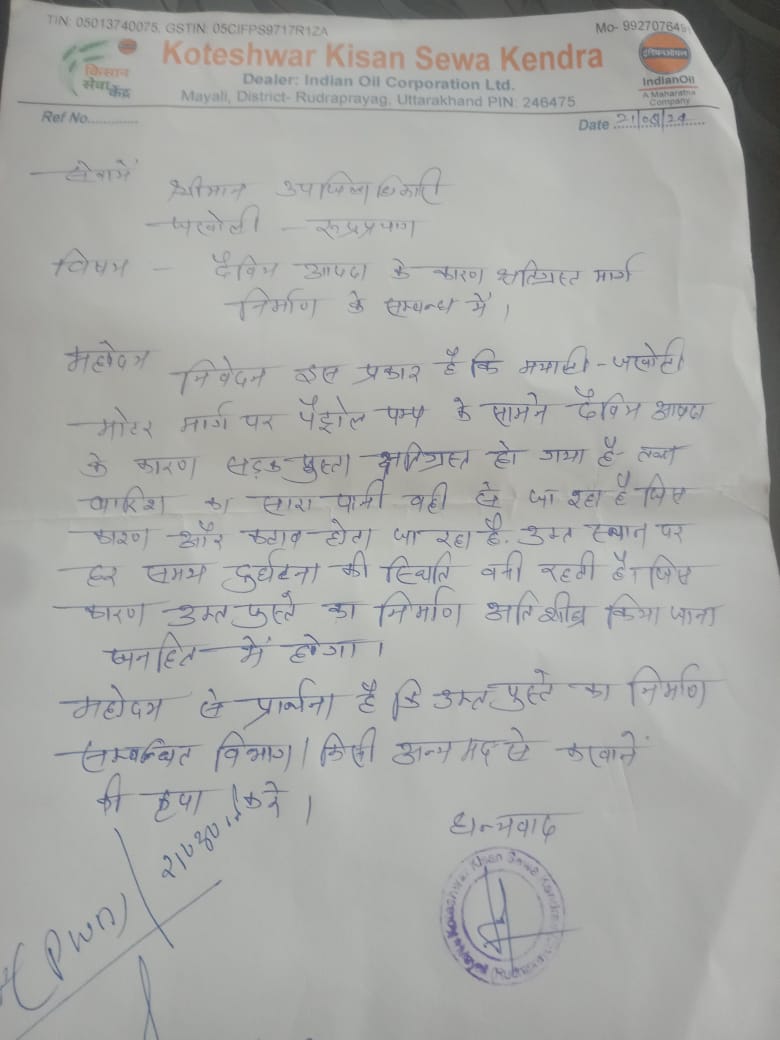 TIN: 05013740075, GSTIN: 05CIFPS9717R1ZA
Mo- 992707649
Koteshwar Kisan Sewa Kendra
किसान
सेवा केंद्र
Dealer: Indian Oil Corporation Ltd.
इंडियनऑयल
IndianOil
A Maharatna
Company
Mayali, District- Rudraprayag, Uttarakhand PIN: 246475
Ref No.............
Date 21/08/24
सेवामें
श्रीमान उपजिलाधिकारी
जखोली - रूद्रप्रयाग
विषय - दैविय आपदा के कारण क्षतिग्रस्त मार्ग
निर्माण के सम्बन्ध में।
महोदय
निवेदन इस प्रकार है कि मयाली - जखोली
मोटर मार्ग पर पैट्रोल पम्प के सामने दैविय आपदा
के कारण सड़क पुस्ता क्षतिग्रस्त हो गया है
बारिश का सारा पानी वही से जा रहा है जिस
कारण और कटाव होता जा रहा है. उक्त स्थान पर
हर समय दुर्घटना की स्थिति बनी रहती है। जिस
कारण उक्त पुस्ते का निर्माण अतिशीघ्र किया जाना
जनहित में होगा।
महोदय से प्रार्थना है कि उक्त पुस्ते का निर्माण
सम्बन्धित विभाग / किसी अन्य मद से करवाने
की कृपा करे।
धन्यवाद
(PWD)
Koteshwar Kisan Sewa Kendra